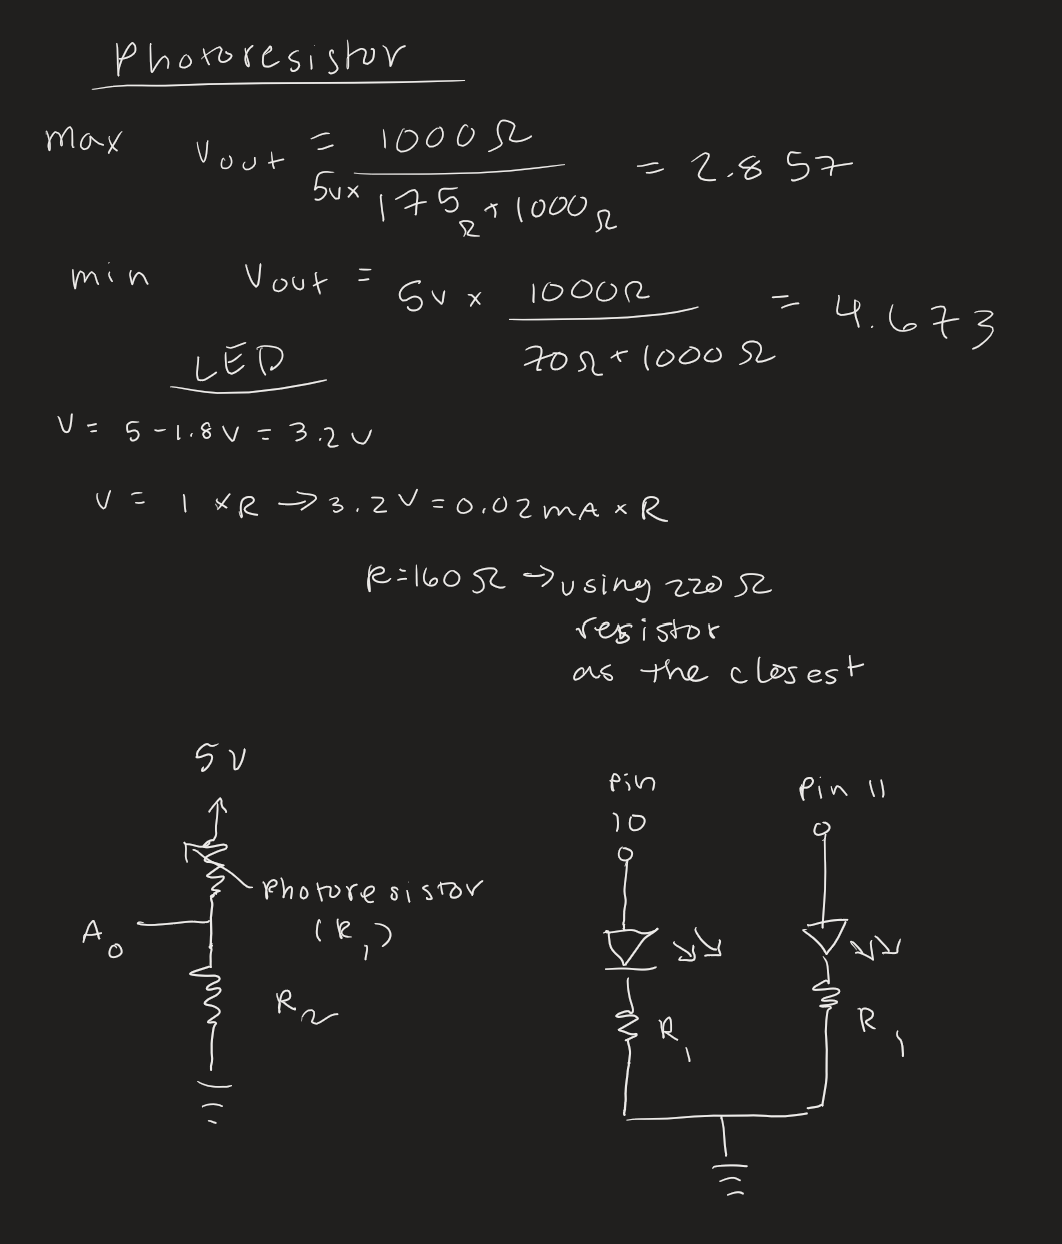 Photoresistor
max Vout = 5V x 1000Ω / 175Ω + 1000Ω = 2.857
min Vout = 5V x 1000Ω / 70Ω + 1000Ω = 4.673
LED
V = 5 - 1.8V = 3.2V
V = 1 x R → 3.2V = 0.02mA x R
R = 160Ω → using 220Ω
resistor
as the closest
5V
Photoresistor
(R1)
A0
R2
Pin
10
R1
Pin 11
R1